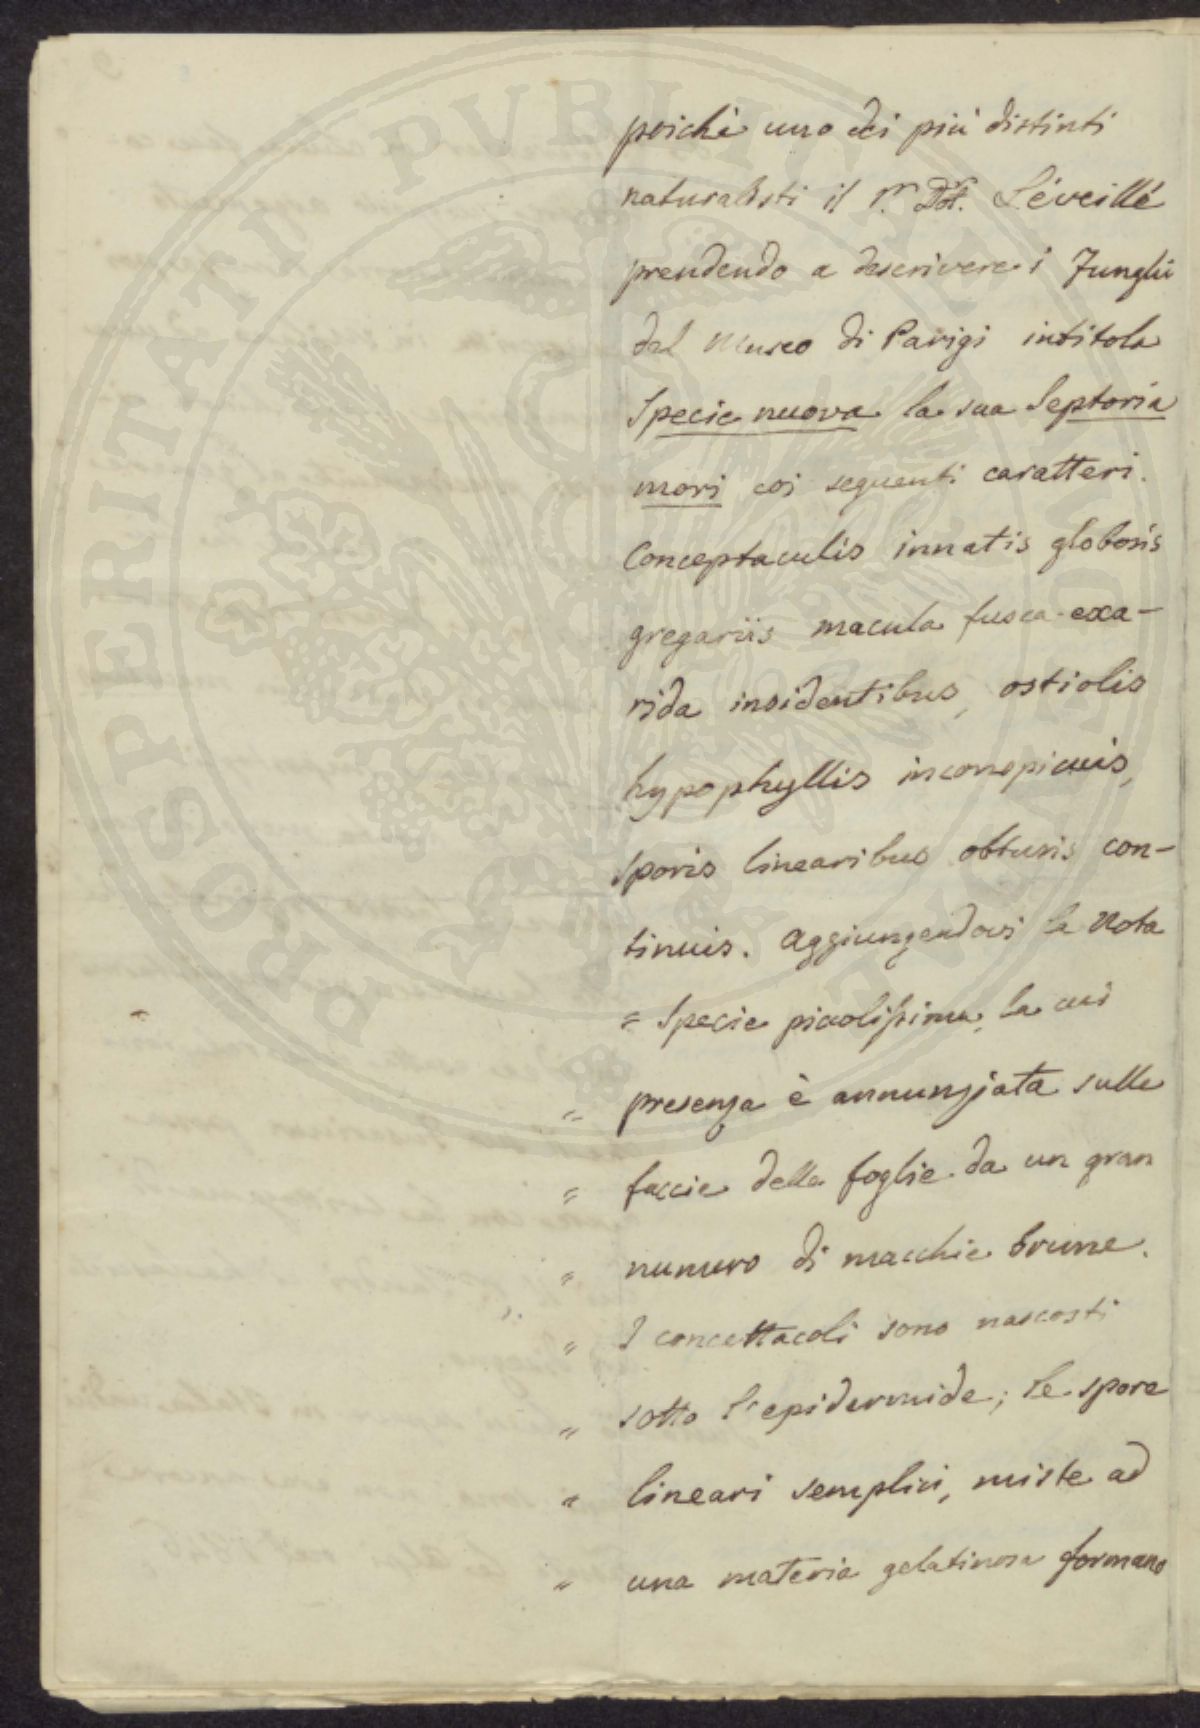 PROSPERITATI PVBLICAE AVGENDAE
poichè uno dei più distinti
naturalisti il Sr. Dot. Léveillé
prendendo a descrivere i Funghi
del Museo di Parigi intitola
Specie nuova la sua Septoria
mori coi seguenti caratteri.
Conceptaculis innatis globosis
gregariis macula fusca exa-
rida insidentibus, ostiolis
hypophyllis inconspicuis,
sporis linearibus obtusis con-
tinuis. Aggiungendovi la Nota
= Specie piccolissima, la cui
" presenza è annunziata sulle
" faccie della foglie da un gran
" numero di macchie brune.
" I concettacoli sono nascosti
" sotto l'epidermide; le spore
" lineari semplici, miste ad
" una materia gelatinosa formano